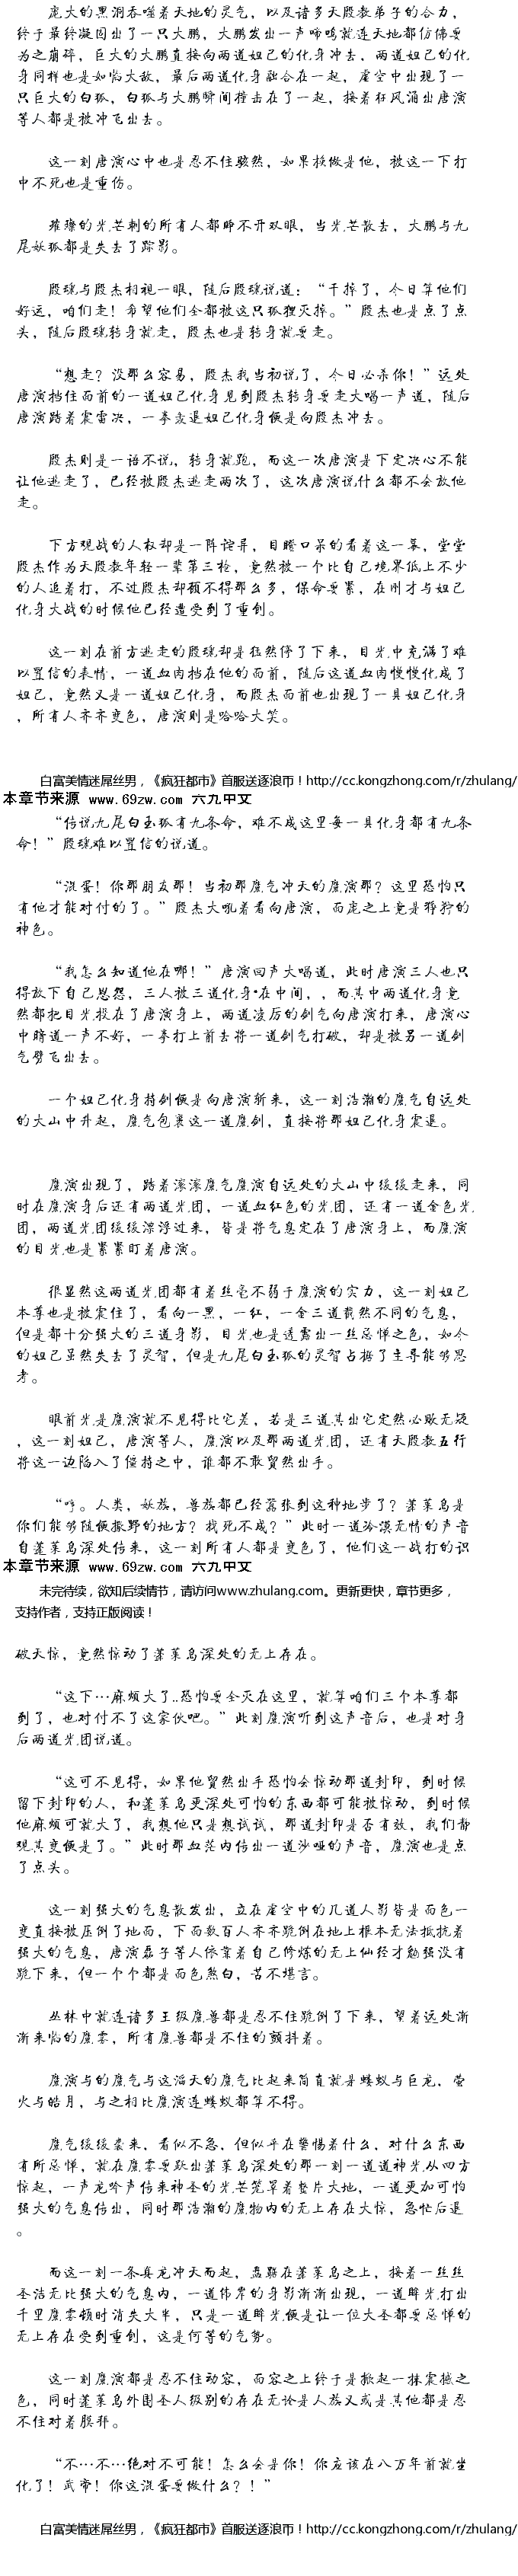 庞大的黑洞吞噬着天地的灵气，以及诸多天殿教弟子的合力，
终于最终凝固出了一只大鹏，大鹏发出一声啼鸣就连天地都仿佛要
为之崩碎，巨大的大鹏直接向两道妲己的化身冲去，两道妲己的化
身同样也是如临大敌，最后两道化身融合在一起，虚空中出现了一
只巨大的白狐，白狐与大鹏瞬间撞击在了一起，接着狂风涌出唐演
等人都是被冲飞出去。
这一刻唐演心中也是忍不住骇然，如果换做是他，被这一下打
中不死也是重伤。
璀璨的光芒刺的所有人都睁不开双眼，当光芒散去，大鹏与九
尾妖狐都是失去了踪影。
殷琛与殷杰相视一眼，随后殷琛说道：“干掉了，今日算他们
好运，咱们走！希望他们全都被这只狐狸灭掉。”殷杰也是点了点
头，随后殷琛转身就走，殷杰也是转身就要走。
“想走？没那么容易，殷杰我当初说了，今日必杀你！”远处
唐演挡住面前的一道妲己化身见到殷杰转身要走大喝一声道，随后
唐演踏着震雷决，一拳轰退妲己化身便是向殷杰冲去。
殷杰则是一语不说，转身就跑，而这一次唐演是下定决心不能
让他逃走了，已经被殷杰逃走两次了，这次唐演说什么都不会放他
走。
下方观战的人权却是一阵诧异，目瞪口呆的看着这一幕，堂堂
殷杰作为天殿教年轻一辈第三枪，竟然被一个比自己境界低上不少
的人追着打，不过殷杰却顾不得那么多，保命要紧，在刚才与妲己
化身大战的时候他已经遭受到了重创。
这一刻在前方逃走的殷琛却是猛然停了下来，目光中充满了难
以置信的表情，一道血肉挡在他的面前，随后这道血肉慢慢化成了
妲己，竟然又是一道妲己化身，而殷杰面前也出现了一具妲己化身
，所有人齐齐变色，唐演则是哈哈大笑。
白富美情迷屌丝男，《疯狂都市》首服送逐浪币！http://cc.kongzhong.com/r/zhulang/
本章节来源 www.69zw.com 六九中文
“传说九尾白玉狐有九条命，难不成这里每一具化身都有九条
命！”殷琛难以置信的说道。
“混蛋！你那朋友那！当初那魔气冲天的魔演那？这里恐怕只
有他才能对付的了。”殷杰大吼着看向唐演，而庞之上竟是狰狞的
神色。
“我怎么知道他在哪！”唐演回声大喝道，此时唐演三人也只
得放下自己恩怨，三人被三道化身·在中间，，而其中两道化身竟
然都把目光投在了唐演身上，两道凌厉的剑气向唐演打来，唐演心
中暗道一声不好，一拳打上前去将一道剑气打破，却是被另一道剑
气劈飞出去。
一个妲己化身持剑便是向唐演斩来，这一刻浩瀚的魔气自远处
的大山中升起，魔气包裹这一道魔剑，直接将那妲己化身震退。
魔演出现了，踏着滚滚魔气魔演自远处的大山中缓缓走来，同
时在魔演身后还有两道光团，一道血红色的光团，还有一道金色光
团，两道光团缓缓漂浮过来，皆是将气息定在了唐演身上，而魔演
的目光也是紧紧盯着唐演。
很显然这两道光团都有着丝毫不弱于魔演的实力，这一刻妲己
本尊也是被震住了，看向一黑，一红，一金三道截然不同的气息，
但是都十分强大的三道身影，目光也是透露出一丝忌惮之色，如今
的妲己虽然失去了灵智，但是九尾白玉狐的灵智占据了主导能够思
考。
眼前光是魔演就不见得比它差，若是三道其出它定然必败无疑
，这一刻妲己，唐演等人，魔演以及那两道光团，还有天殿教五行
将这一边陷入了僵持之中，谁都不敢贸然出手。
“哼。人类，妖族，兽族都已经嚣张到这种地步了？蓬莱岛是
你们能够随便撒野的地方？找死不成？”此时一道冷漠无情的声音
自蓬莱岛深处传来，这一刻所有人都是变色了，他们这一战打的识
本章节来源 www.69zw.com 六九中文
未完待续，欲知后续情节，请访问www.zhulang.com。更新更快，章节更多，
支持作者，支持正版阅读！
破天惊，竟然惊动了蓬莱岛深处的无上存在。
“这下…麻烦大了..恐怕要全灭在这里，就算咱们三个本尊都
到了，也对付不了这家伙吧。”此刻魔演听到这声音后，也是对身
后两道光团说道。
“这可不见得，如果他贸然出手恐怕会惊动那道封印，到时候
留下封印的人，和蓬莱岛更深处可怕的东西都可能被惊动，到时候
他麻烦可就大了，我想他只是想试试，那道封印是否有效，我们静
观其变便是了。”此时那血茫内传出一道沙哑的声音，魔演也是点
了点头。
这一刻强大的气息散发出，立在虚空中的几道人影皆是面色一
变直接被压倒了地面，下面数百人齐齐跪倒在地上根本无法抵抗着
强大的气息，唐演磊子等人依靠着自己修炼的无上仙经才勉强没有
跪下来，但一个个都是面色煞白，苦不堪言。
丛林中就连诸多王级魔兽都是忍不住跪倒了下来，望着远处渐
渐来临的魔雾，所有魔兽都是不住的颤抖着。
魔演与的魔气与这滔天的魔气比起来简直就是蝼蚁与巨龙，萤
火与皓月，与之相比魔演连蝼蚁都算不得。
魔气缓缓袭来，看似不急，但似乎在警惕着什么，对什么东西
有所忌惮，就在魔雾要跃出蓬莱岛深处的那一刻一道道神光从四方
惊起，一声龙吟声传来神圣的光芒笼罩着整片大地，一道更加可怕
强大的气息传出，同时那浩瀚的魔物内的无上存在大惊，急忙后退
。
而这一刻一条真龙冲天而起，盘踞在蓬莱岛之上，接着一丝丝
圣洁无比强大的气息内，一道伟岸的身影渐渐出现，一道眸光打出
千里魔雾顿时消失大半，只是一道眸光便是让一位大圣都要忌惮的
无上存在受到重创，这是何等的气势。
这一刻魔演都是忍不住动容，面容之上终于是掀起一抹震撼之
色，同时蓬莱岛外围圣人级别的存在无论是人族又或是其他都是忍
不住对着膜拜。
“不…不…绝对不可能！怎么会是你！你应该在八万年前就坐
化了！武帝！你这混蛋要做什么？！”
白富美情迷屌丝男，《疯狂都市》首服送逐浪币！http://cc.kongzhong.com/r/zhulang/